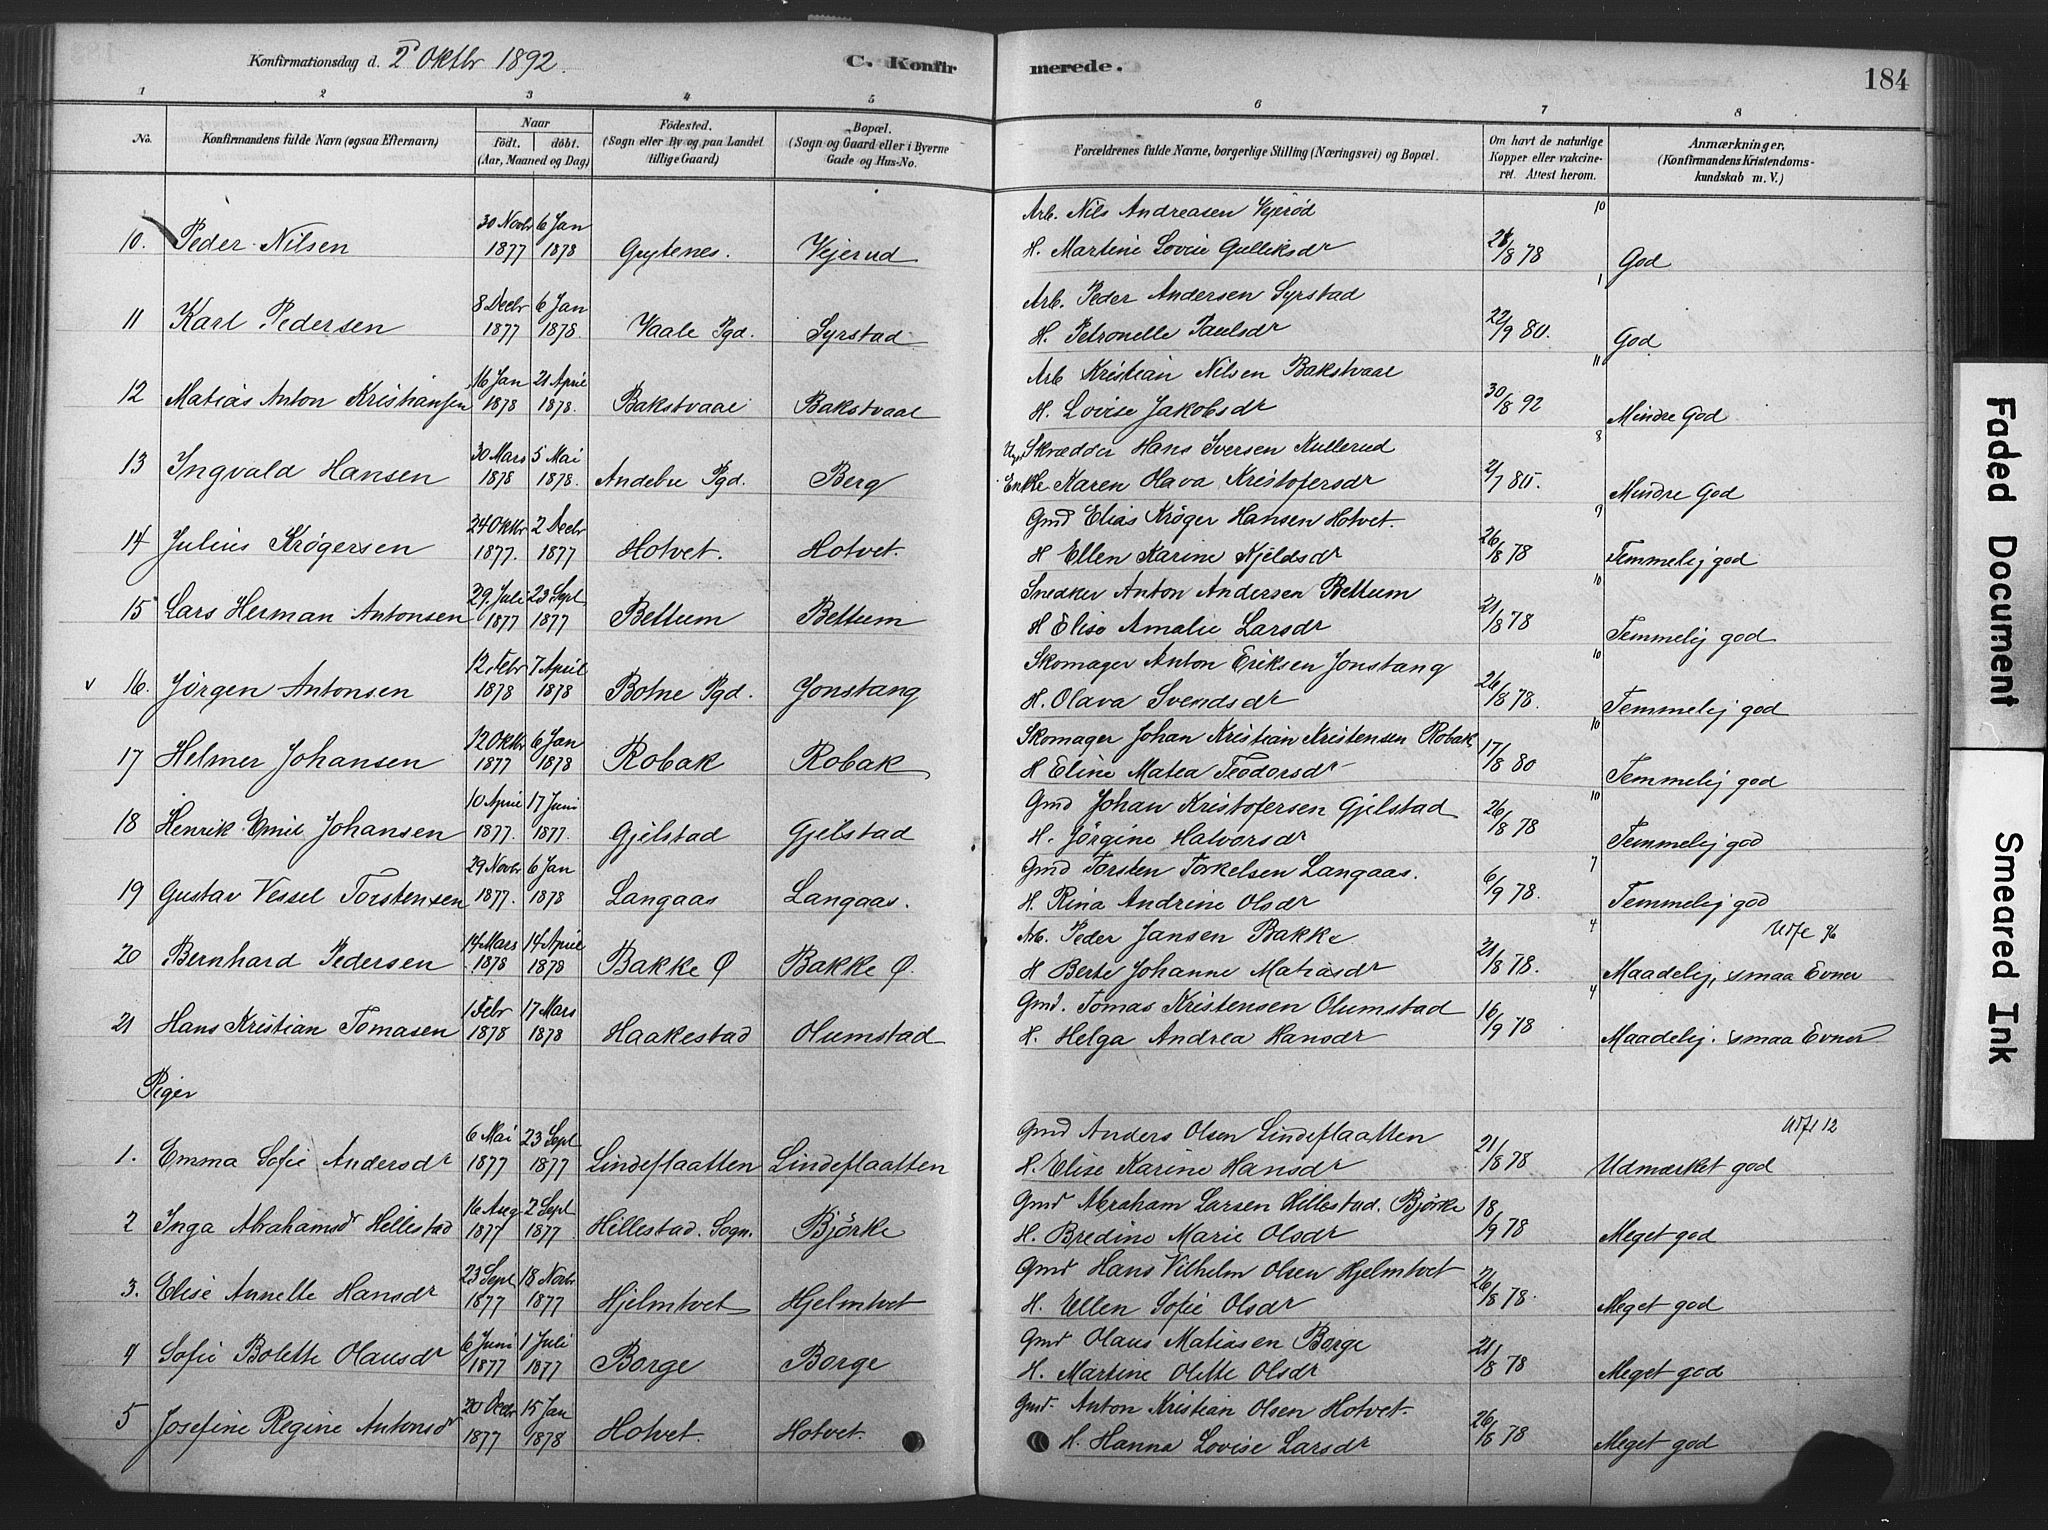 Konfirmationsdag d. 2 Oktbr 1892.
C. Konfirmerede.
184
1 2 3 4 5 6 7 8
No.
Konfirmandens fulde Navn (ogsaa Efternavn)
Naar
født. døbt.
(Aar, Maaned og Dag)
Fødested.
(Sogn eller By og paa Landet tillige Gaard)
Bopæl.
(Sogn og Gaard eller i Byerne Gade og Hus-No.
Forældrenes fulde Navne, borgerlige Stilling (Næringsvei) og Bopæl.
Om havt de naturlige Kopper eller vakcineret. Attest herom.
Anmærkninger,
(Konfirmandens Kristendomskundskab m. V.)
30 Novbr 6 Jan Arb. Nils Andreasen Vejerød 10
10. Peder Nilsen 1877 1878 Grytenes. Vejerud H. Martine Lovise Gulliksdr 26/8 78 God
8 Decbr 6 Jan Arb. Peder Andersen Syrstad 1
11 Karl Pedersen 1877 1878. Vaale Pgd. Syrstad H. Petronelle Paulsdr 22/9 80. God
16 Jan 21 April Arb Kristian Nilsen Bakstvaal 11
12 Matias Anton Kristiansen 1878 1878. Bakstvaal Bakstvaal H. Lovise Jakobsdr 30/8 92 Mindre God
30 Mars 5 Mai Skrædder Hans Iversen Kullerud 8
13 Ingvald Hansen 1878 1878. Andebu Pgd. Berg Enke Karen Olava Kristofersdr 2/7 85. Mindre God
24 Oktbr 2 Decbr Gmd Elias Krøger Hansen Hotvet. 9
14 Julius Krøgersen 1877. 1877 Hotvet. Hotvet. H Ellen Karine Kjeldsdr 26/8 78 Temmelig god
29. Juli 23 Sept Snedker Anton Andersen Bettum 10
15 Lars Herman Antonsen 1877 1877 Bettum Bettum H Elise Amalie Larsdr 21/8 78 Temmelig god
12 Febr 7 April Skomager Anton Eriksen Jonstang 10
v 16. Jørgen Antonsen 1878 1878 Botne Pgd. Jonstang H. Olava Svendsdr 26/8 78. Temmelig god
12 Oktbr 6 Jan Skomager Johan Kristian Kristensen Robak 10
17 Helmer Johansen 1877 1878 Robak Robak H Eline Matea Teodorsdr 17/8 80 Temmelig god
10 April 17 Juni Gmd Johan Kristofersen Gjelstad 10
18 Henrik Emil Johansen 1877. 1877. Gjelstad Gjelstad H. Jørgine Halvorsdr 26/8 78 Temmelig god
29 Novbr 6 Jan Gmd Torsten Torkelsen Langaas. 7
19 Gustav Vessel Torstensen 1877. 1878 Langaas Langaas. H. Rina Andrine Olsdr 6/9 78. Temmelig god
14 Mars 14 April Arb. Peder Jansen Bakke 4 Udfl 96
20 Bernhard Pedersen 1878 1878 Bakke Ø Bakke Ø. H Berte Johanne Matiasdr 21/8 78. Maadelig, smaa Evner
1 Febr 17 Mars Gmd. Tomas Kristensen Olumstad 4
21 Hans Kristian Tomasen 1878 1878 Haakestad Olumstad H. Helga Andrea Hansdr 16/9 78 Maadelig. smaa Evner
Piger
6 Mai 23 Sept Gmd Anders Olsen Lindeflaatten Udfl 12
1. Emma Sofie Andersdr 1877 1877 Lindeflaatten Lindeflaatten H. Elise Karine Hansdr 21/8 78 Udmærket god
16 Aug 2 Sept Gmd Abraham Larsen Hillestad. Bjørke
2 Inga Abrahamsdr Hillestad 1877 1877. Hillestad. Sogn. Bjørke H. Bredine Marie Olsdr 18/9 78 Meget god
23 Sept 18 Novbr Gmd Hans Vilhelm Olsen Hjelmtvet
3. Elise Annette Hansdr 1877 1877 Hjelmtvet Hjelmtvet H. Ellen Sofie Olsdr 26/8 78. Meget god
6 Juni 1 Juli Gmd Olaus Matiasen Borge
4 Sofie Bolette Olausdr 1877 1877 Borge Borge H. Martine Olette Olsdr 21/8 78 Meget god
20 Decbr 15 Jan Gmd. Anton Kristian Olsen Hotvet.
5 Josefine Regine Antonsdr 1877 1878 Hotvet. Hotvet. H. Hanna Lovise Larsdr 26/8 78 Meget god
Faded Document
Smeared Ink